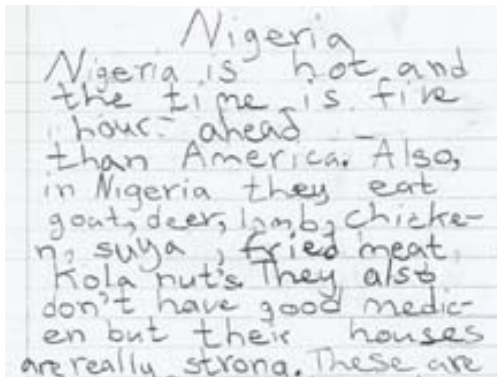 Nigeria
Nigeria is hot and
the time is five
hour ahead
than America. Also,
in Nigeria they eat
goat, deer, lamb, chicke-
n, suya, fried meat,
Kola nut's. They also
don't have good medic-
en but their houses
are really strong. These are